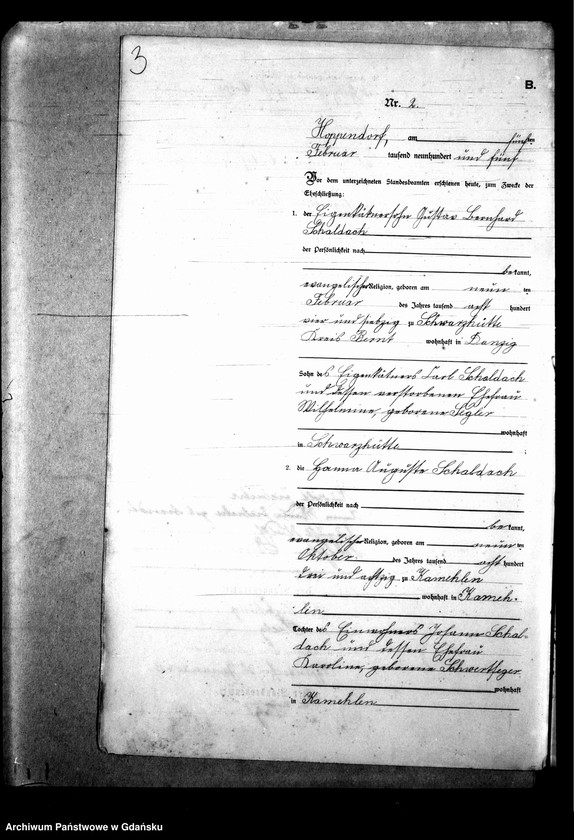 3
B.
Nr. 2.
Hoppendorf, am fünften
Februar tausend neunhundert und fünf
Vor dem unterzeichneten Standesbeamten erschienen heute, zum Zwecke der
Eheschließung:
1. der Eigenkätnersohn Gustav Bernhard
Schaldach
der Persönlichkeit nach
bekannt,
evangelischer Religion, geboren am neunten
Februar des Jahres tausend acht hundert
vier und siebzig zu Schwarzhütte
Kreis Bernt wohnhaft in Danzig
Sohn des Eigenkätners Carl Schaldach
und dessen verstorbenen Ehefrau
Wilhelmine, geborene Segler
wohnhaft
in Schwarzhütte
2. die Hanna Auguste Schaldach
der Persönlichkeit nach
bekannt,
evangelischer Religion, geboren am neunten
Oktober des Jahres tausend acht hundert
drei und achtzig zu Kamehlen
wohnhaft in Kameh-
len
Tochter des Einwohners Johann Schal-
dach und dessen Ehefrau
Karoline, geborene Schwertfeger
wohnhaft
in Kamehlen
Archiwum Państwowe w Gdańsku